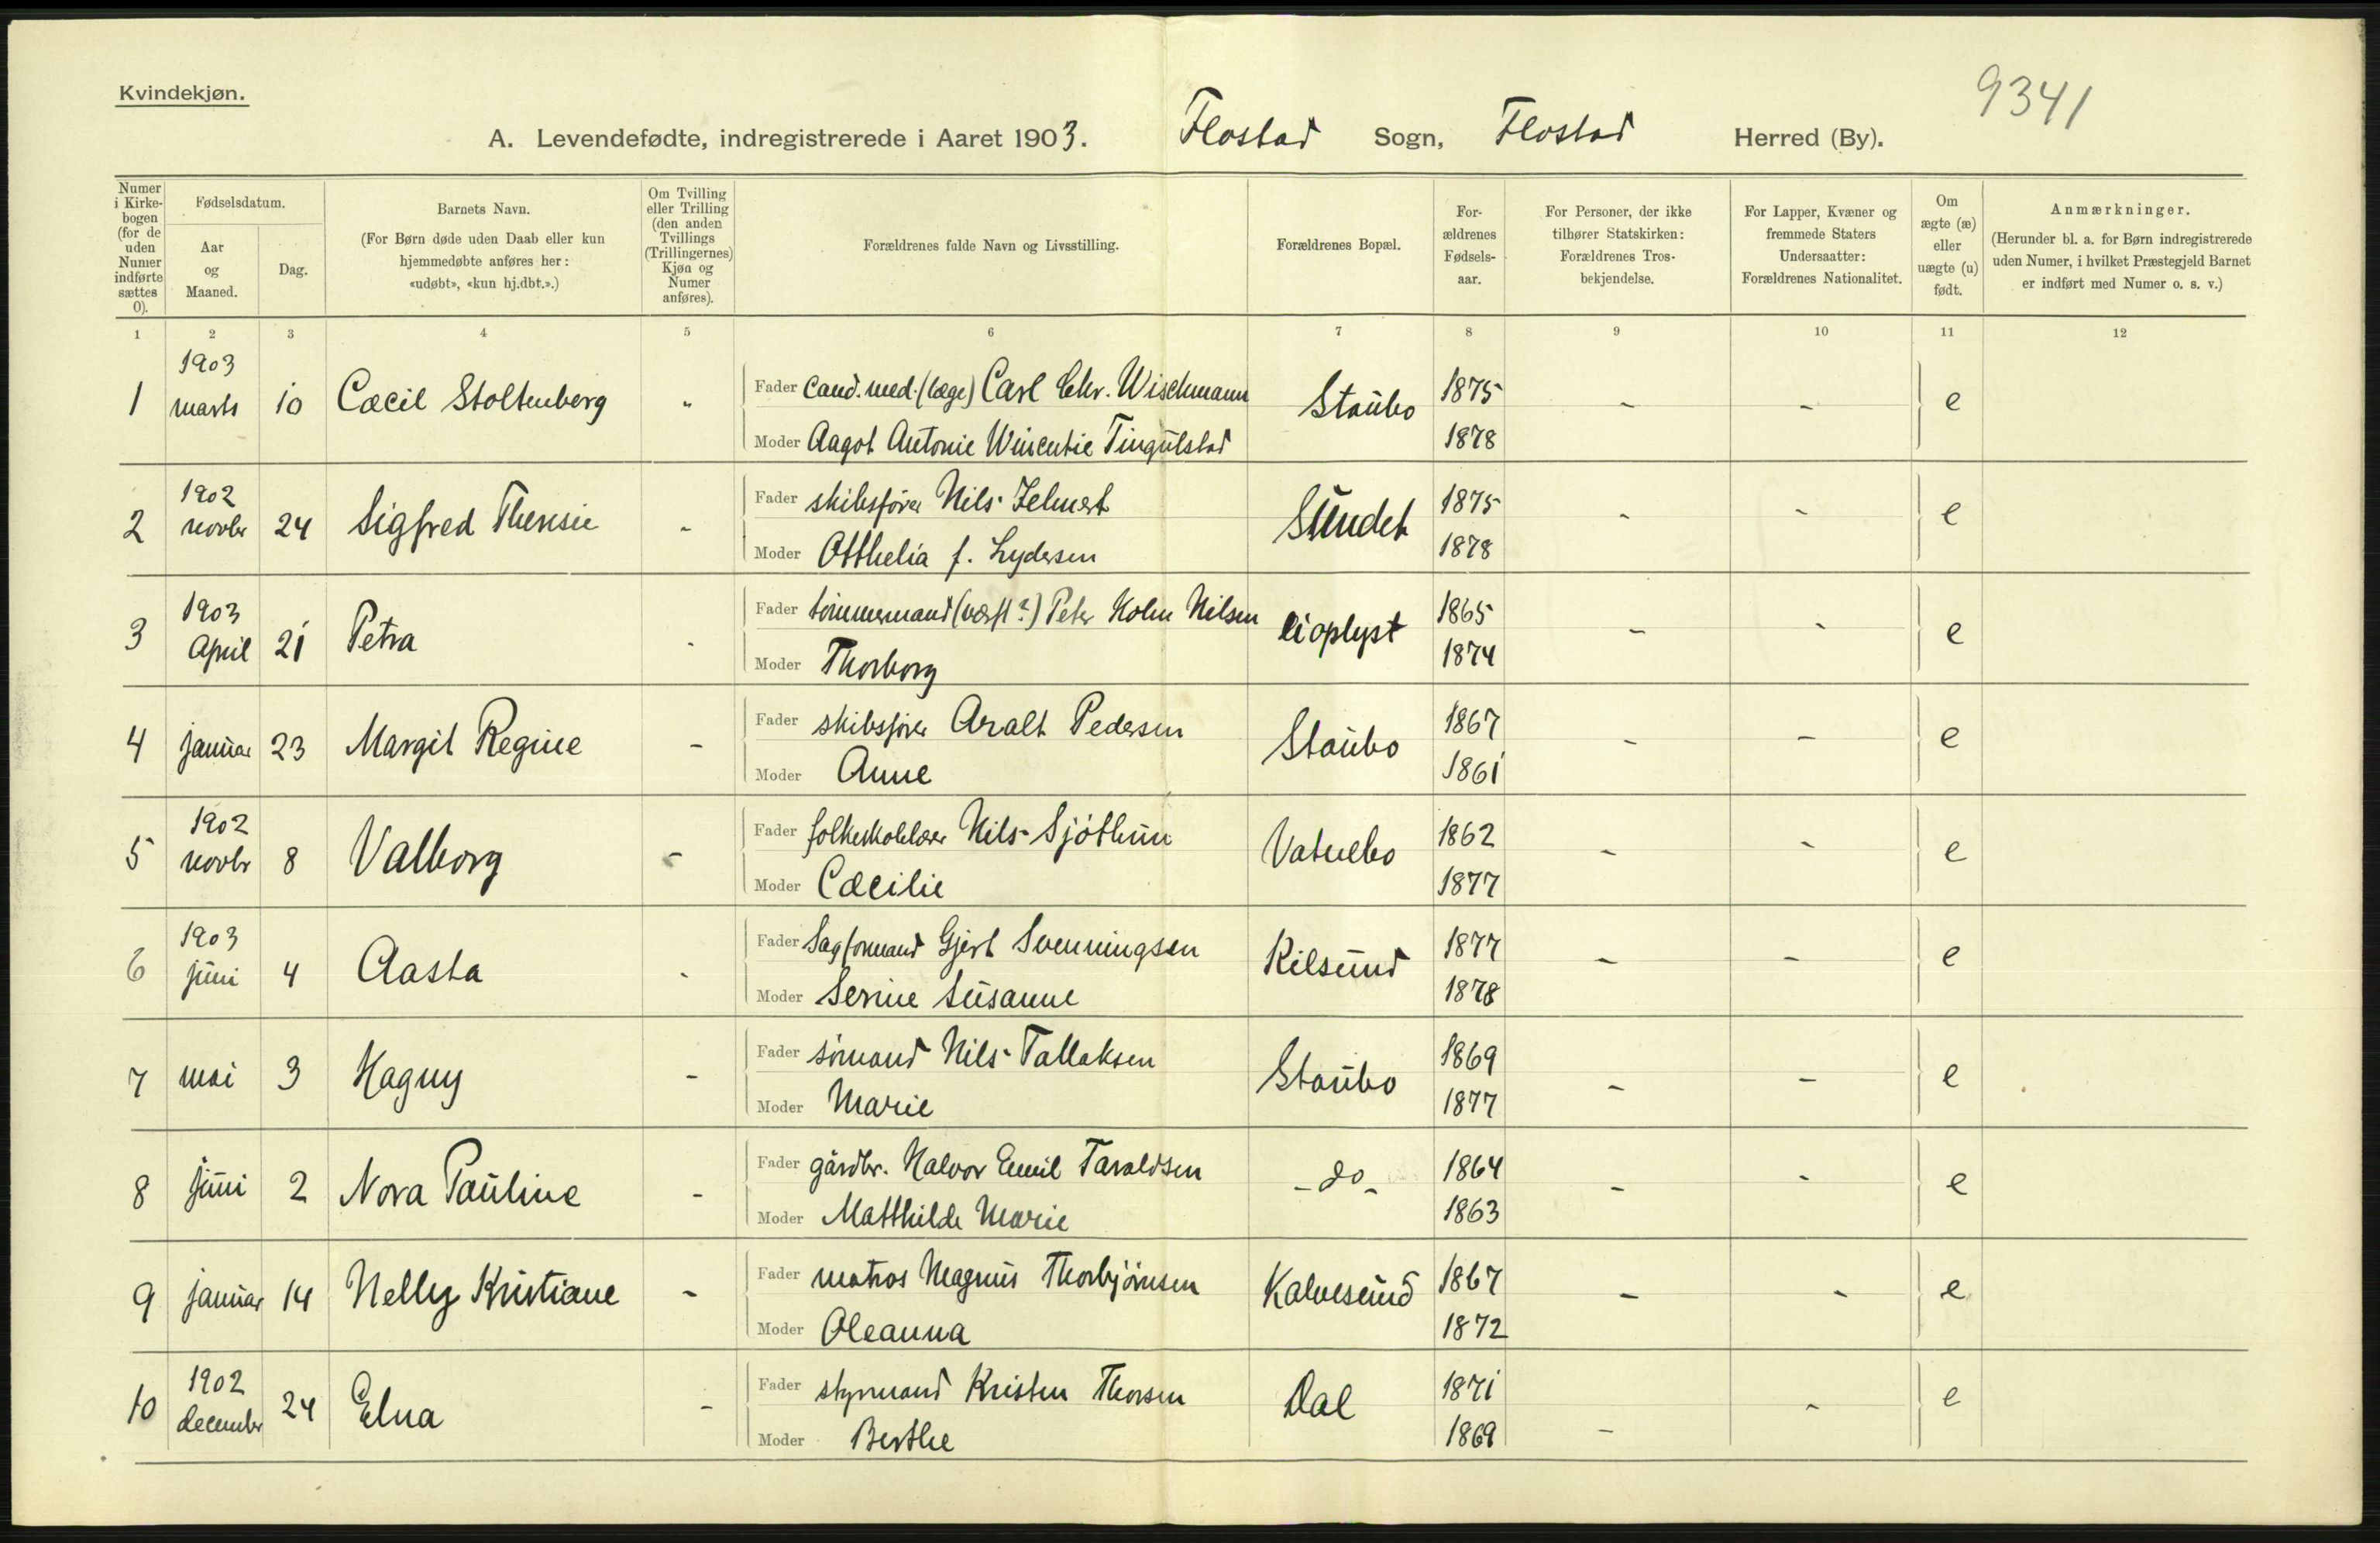 Kvindekjøn.
9341
A. Levendefødte, indregistrerede i Aaret 1903. Flostad Sogn, Flostad Herred (By).
Numer i Kirkebogen (for de uden Numer indførte sættes 0).
Fødselsdatum.
Aar og Maaned.
Dag.
Barnets Navn.
(For Børn døde uden Daab eller kun hjemmedøbte anføres her: «udøbt», «kun hj.dbt.».)
Om Tvilling eller Trilling (den anden Tvillings (Trillingernes) Kjøn og Numer anføres).
Forældrenes fulde Navn og Livsstilling.
Forældrenes Bopæl.
Forældrenes Fødselsaar.
For Personer, der ikke tilhører Statskirken: Forældrenes Trosbekjendelse.
For Lapper, Kvæner og fremmede Staters Undersaatter: Forældrenes Nationalitet.
Om ægte (æ) eller uægte (u) født.
Anmærkninger.
(Herunder bl. a. for Børn indregistrerede uden Numer, i hvilket Præstegjeld Barnet er indført med Numer o. s. v.)
1 2 3 4 5 6 7 8 9 10 11 12
1 1903 marts 10 Cæcil Stoltenberg " Fader cand. med. (læge) Carl Chr. Wischmann Staubo 1875 - - e
Moder Aagot Antonie Wincentie Tingulstad 1878
2 1902 novbr 24 Sigfred Theresie - Fader skibsfører Nils Jelmert Sundet 1875 - - e
Moder Otthelia f. Lydersen 1878
3 1903 April 21 Petra - Fader tømmermand (værft?) Peter Holm Nilsen uoplyst 1865 - - e
Moder Thorborg 1874
4 januar 23 Margit Regine - Fader skibsfører Aralt Pedersen Staubo 1867 - - e
Moder Anne 1861
5 1902 novbr 8 Valborg - Fader folkeskolelærer Nils Sjøthun Vatnebo 1862 - - e
Moder Cæcilie 1877
6 1903 juni 4 Aasta - Fader Sagformand Gjert Svenningsen Kilsund 1877 - - e
Moder Serine Susanne 1878
7 mai 3 Hagny - Fader sømand Nils Tallaksen Staubo 1869 - - e
Moder Marie 1877
8 juni 2 Nora Pauline - Fader gårdbr. Halvor Emil Taraldsen - do - 1864 - - e
Moder Matthilde Marie 1863
9 januar 14 Nelly Kristiane - Fader matros Magnus Thorbjørnsen Kalvesund 1867 - - e
Moder Oleanna 1872
10 1902 december 24 Elna - Fader styrmand Kristen Thorsen Dal 1871 - - e
Moder Berthe 1869